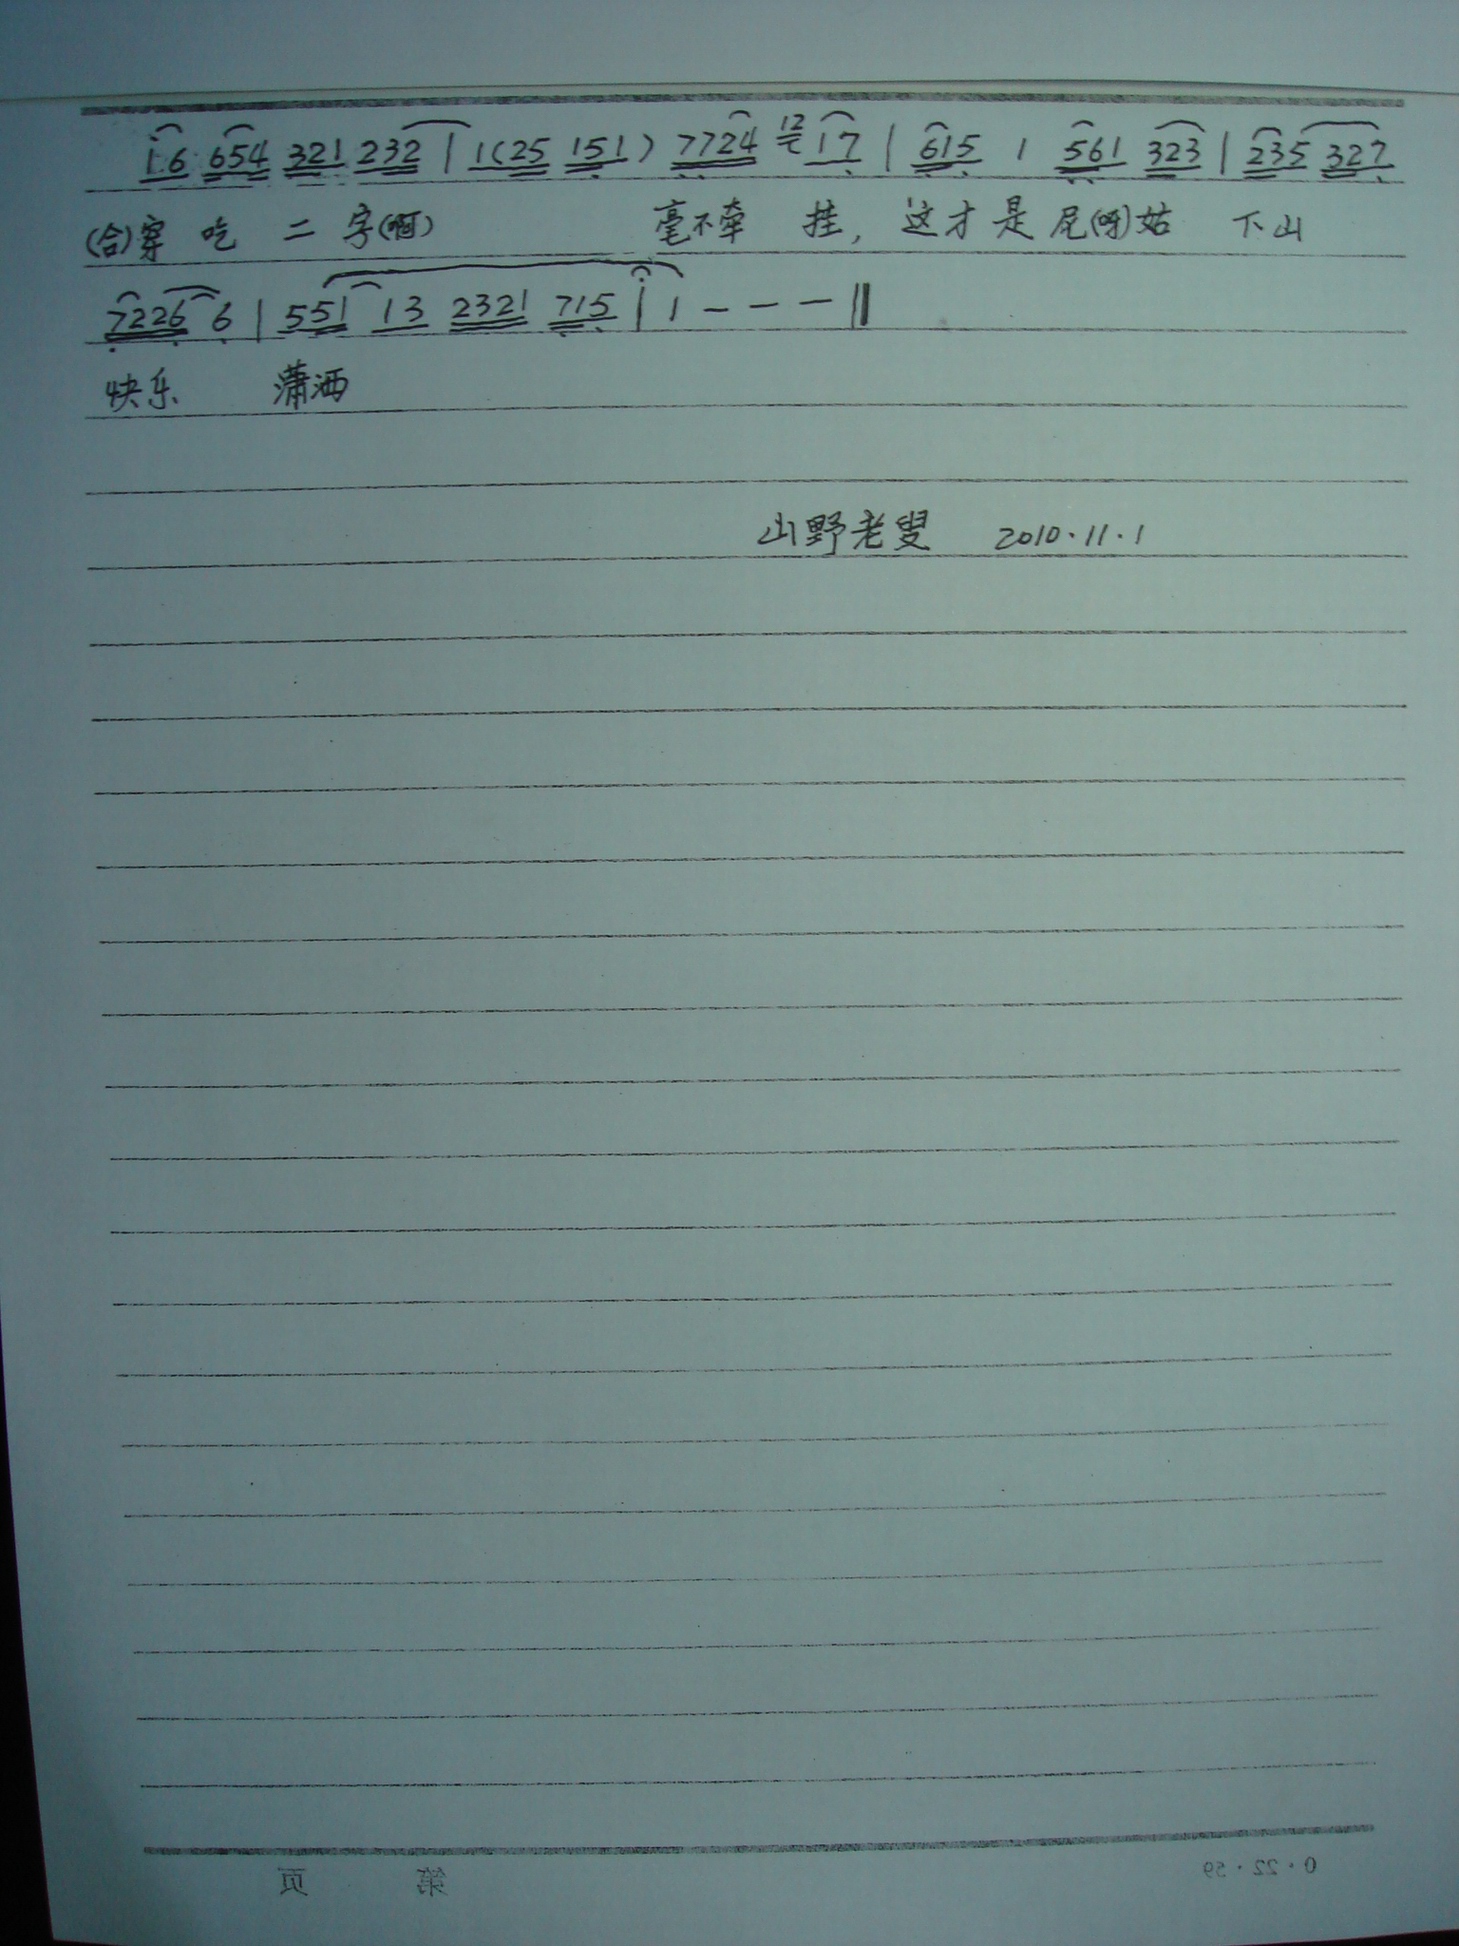 1·6 654 321 232 | 1(25 151) 7724 12 17 | 615 1 561 323 | 235 327
(合)穿 吃 二 字(啊) 毫不牵 挂, 这才是尼(呀)姑 下山
7226 6 | 551 13 2321 715 | 1 - - - ‖
快乐 潇洒
山野老叟 2010·11·1
第 页 0·22·59